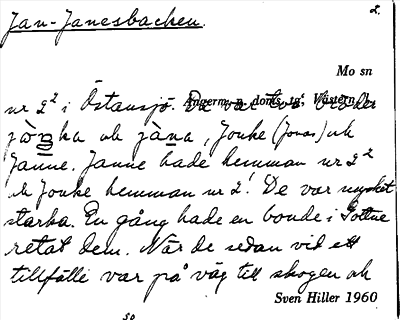 Jan-Janesbacken.
2.
Mo sn
Ångerm. n. doms. tg, Västern. l.
nr 2² i Östansjö. De var två bröder
och jäna, Jonke (Jonas) och
Janne. Janne hade hemman nr 2²
och Jonke hemman nr 2¹. De var mycket
starka. En gång hade en bonde i
retat dem. När de sedan vid ett
tillfälle var på väg till skogen och
Sven Hiller 1960
so